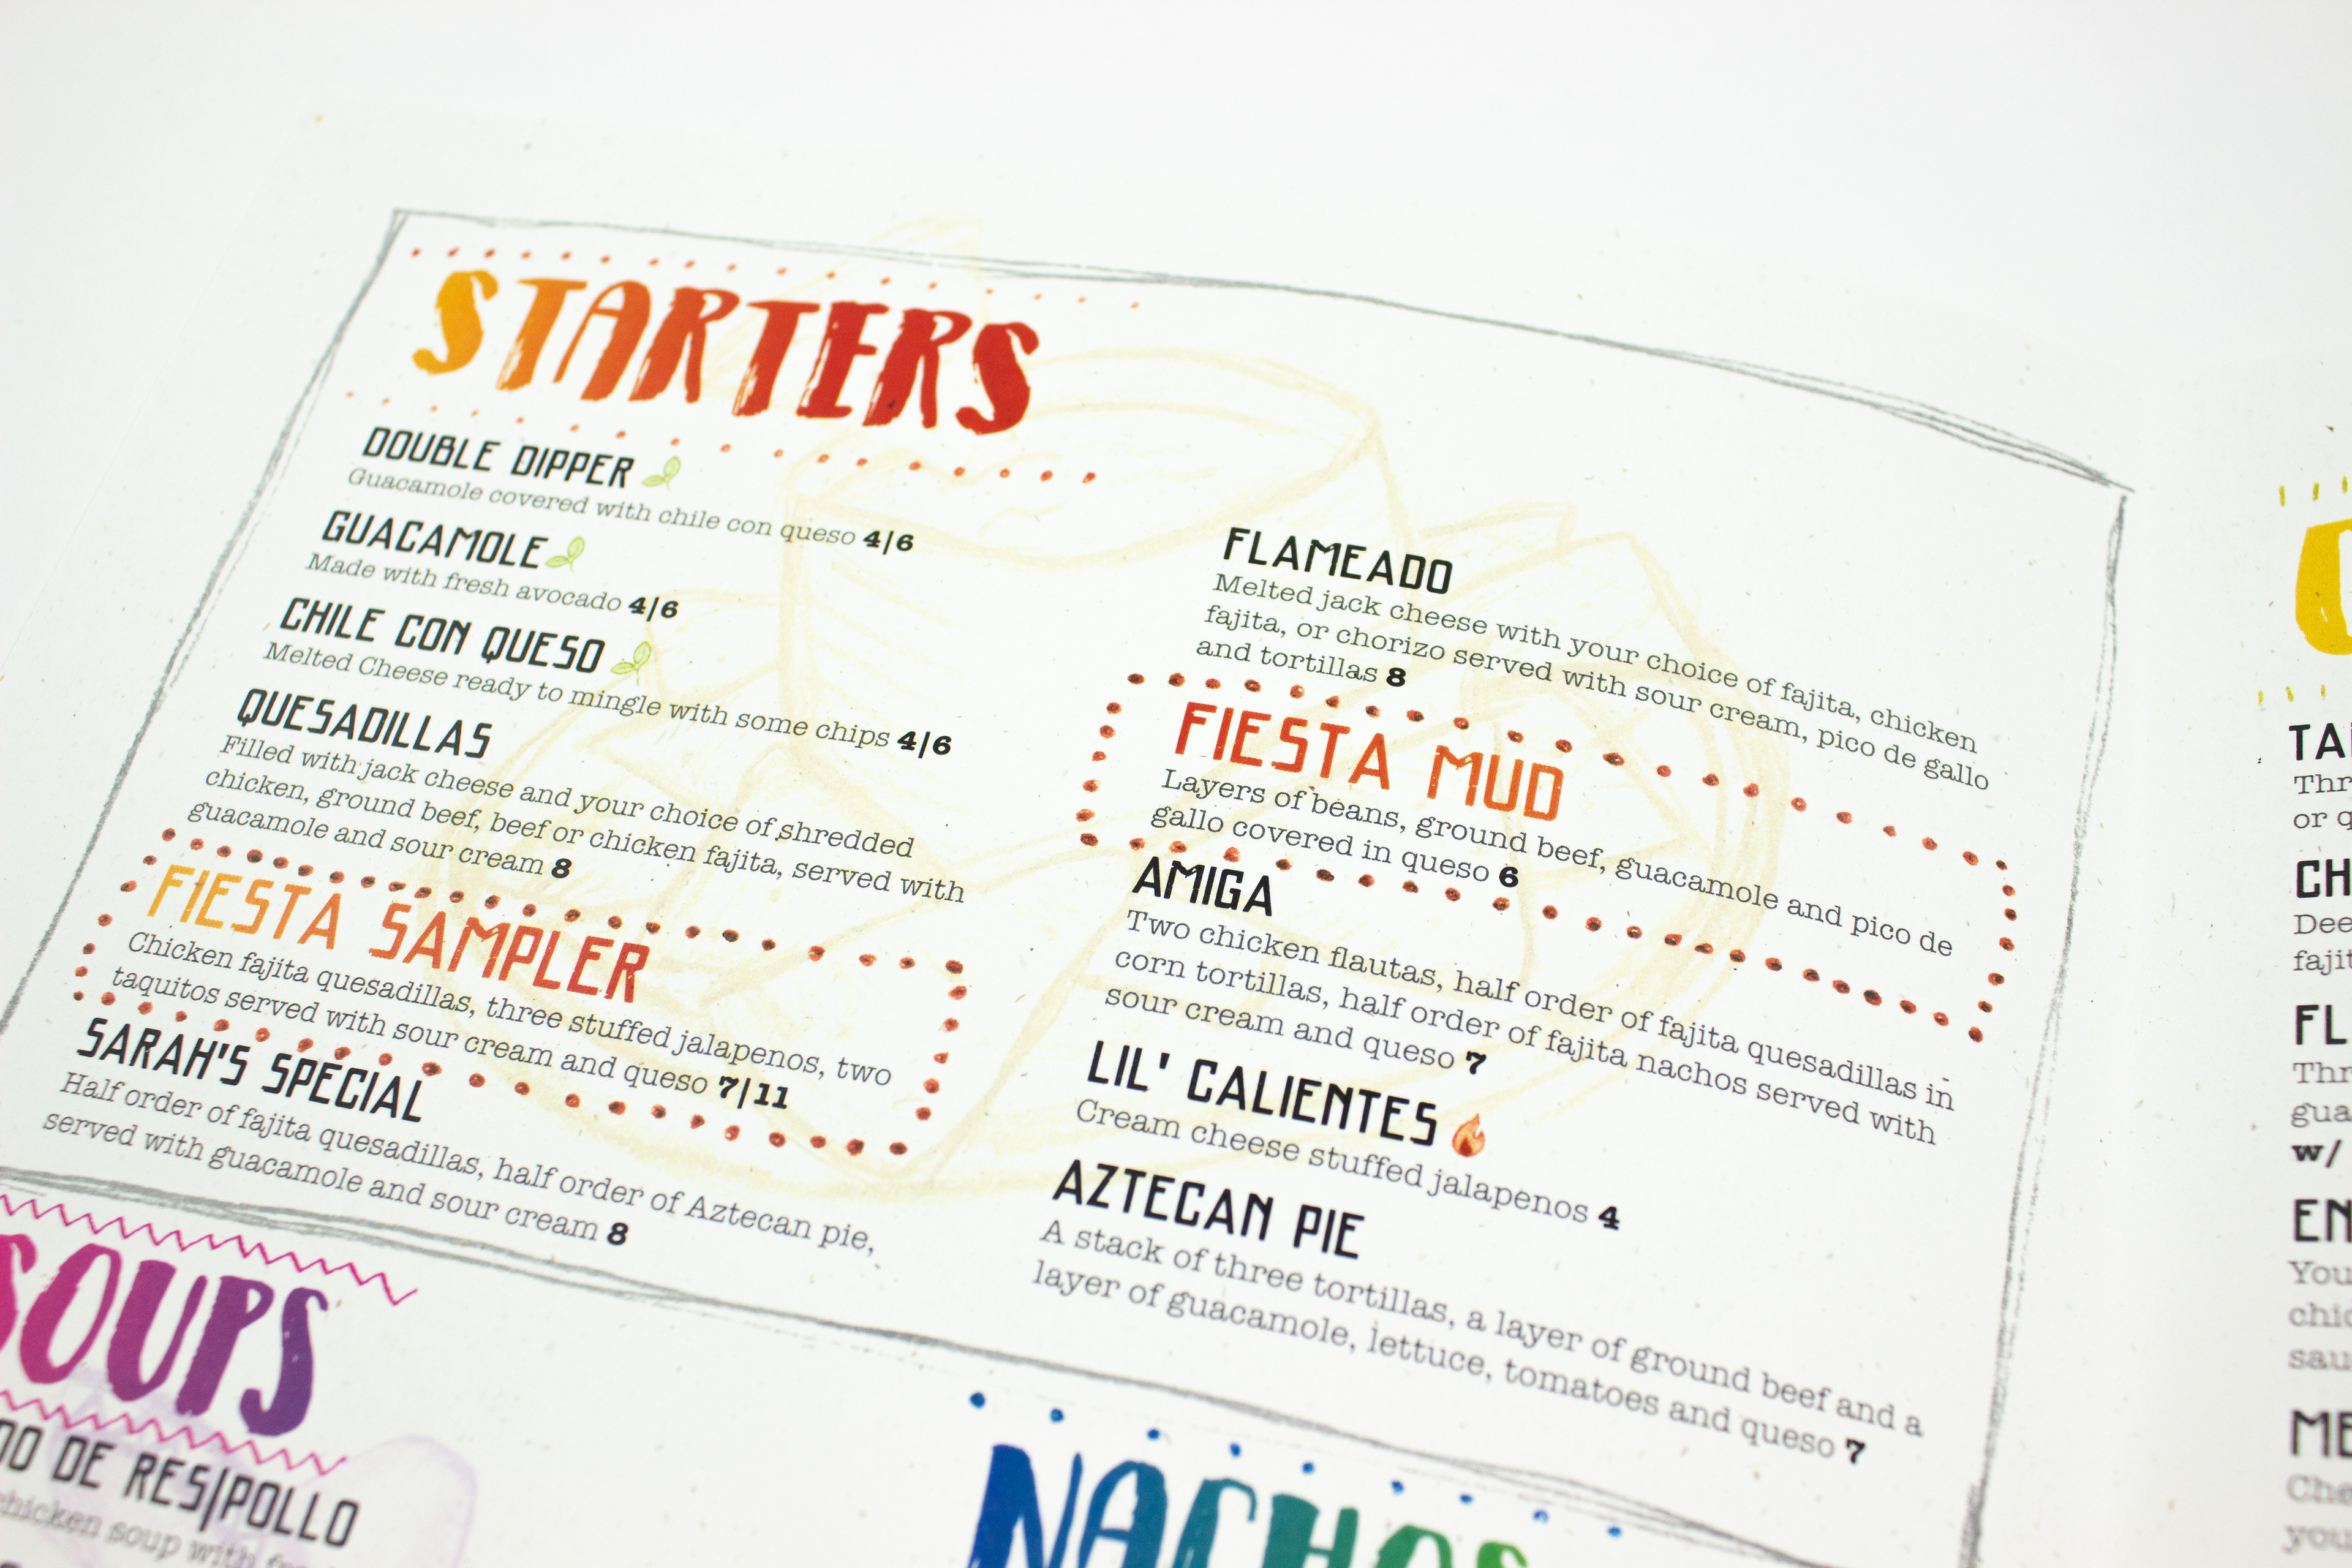 STARTERS
DOUBLE DIPPER
Guacamole covered with chile con queso 4|6
GUACAMOLE
Made with fresh avocado 4|6
CHILE CON QUESO
Melted Cheese ready to mingle with some chips 4|6
QUESADILLAS
Filled with jack cheese and your choice of shredded
chicken, ground beef, beef or chicken fajita, served with
guacamole and sour cream 8
FIESTA SAMPLER
Chicken fajita quesadillas, three stuffed jalapenos, two
taquitos served with sour cream and queso 7|11
SARAH'S SPECIAL
Half order of fajita quesadillas, half order of Aztecan pie,
served with guacamole and sour cream 8
FLAMEADO
Melted jack cheese with your choice of fajita, chicken
fajita, or chorizo served with sour cream, pico de gallo
and tortillas 8
FIESTA MUD
Layers of beans, ground beef, guacamole and pico de
gallo covered in queso 6
AMIGA
Two chicken flautas, half order of fajita quesadillas in
corn tortillas, half order of fajita nachos served with
sour cream and queso 7
LIL' CALIENTES
Cream cheese stuffed jalapenos 4
AZTECAN PIE
A stack of three tortillas, a layer of ground beef and a
layer of guacamole, lettuce, tomatoes and queso 7
SOUPS
DE RES|POLLO
chicken soup with
NACHOS
or
w/